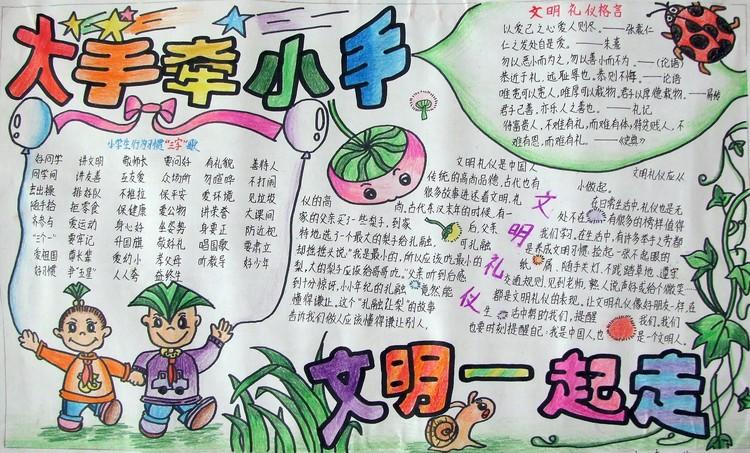 大手牵小手
文明礼仪格言
以爱己之心爱人则尽。——张载仁
仁之发处自是爱。——朱熹
勿以恶小而为之,勿以善小而不为。——《论语》
恭近于礼,远耻辱也。恭则不悔。——论语
唯宽可以宽人,唯厚可以载物。君子以厚德载物。——易传
君子己善,亦乐人之善也。——礼记
待富贵人,不难有礼,而难有体;待贫贱人,不
难有恩,而难有礼。
小学生行为习惯"三字"歌
好同学 讲文明 敬师长 要问好 有礼貌 善待人
同学间 讲友善 互友爱 众场所 勿喧哗 不打闹
进出操 排好队 不推拉 保平安 爱环境 见垃圾
随手拾 拒零食 保健康 爱公物 讲荣誉 大课间
齐参与 爱运动 身心好 坐姿势 身要正 防近视
"三个一" 要牢记 升国旗 敬好礼 唱国歌 要肃立
爱祖国 尊长辈 爱幼小 孝父母 听教导 好少年
好习惯 争"五星" 人人夸 益终生
文明礼仪是中国人
传统的高尚品德,古代也有
很多故事述述着文明、礼
仪的高尚,古代东汉末年的时候,有一
家的父亲买了一些梨子,到家后,父亲
特地选了一个最大的梨子给孔融,可孔融
却摇摇头说:"我是最小的,所以应该吃最小的
梨,大的梨子应该给哥哥吃。"父亲听到后感
到十分惊讶,小小年纪的孔融竟然能
懂得谦让。这个"孔融让梨"的故事
告诉我们做人应该懂得谦让别人。
文明礼仪
文明礼仪应从
小做起。
在日常生活中,礼仪也是无
处不在,有很多的榜样值得
我们学习,在生活中,有许多举手之劳都
是养成文明习惯:捡起一张不起眼的
纸屑、随手关灯、不践踏草地、遵守
交通规则、见到老师、熟人说声好或给个微笑…
都是文明礼仪的表现。让文明礼仪像好朋友一样,在
生活中帮助我们,提醒我们,我们
也要时刻提醒自己:我是中国人,也是一个文明人。
文明一起走